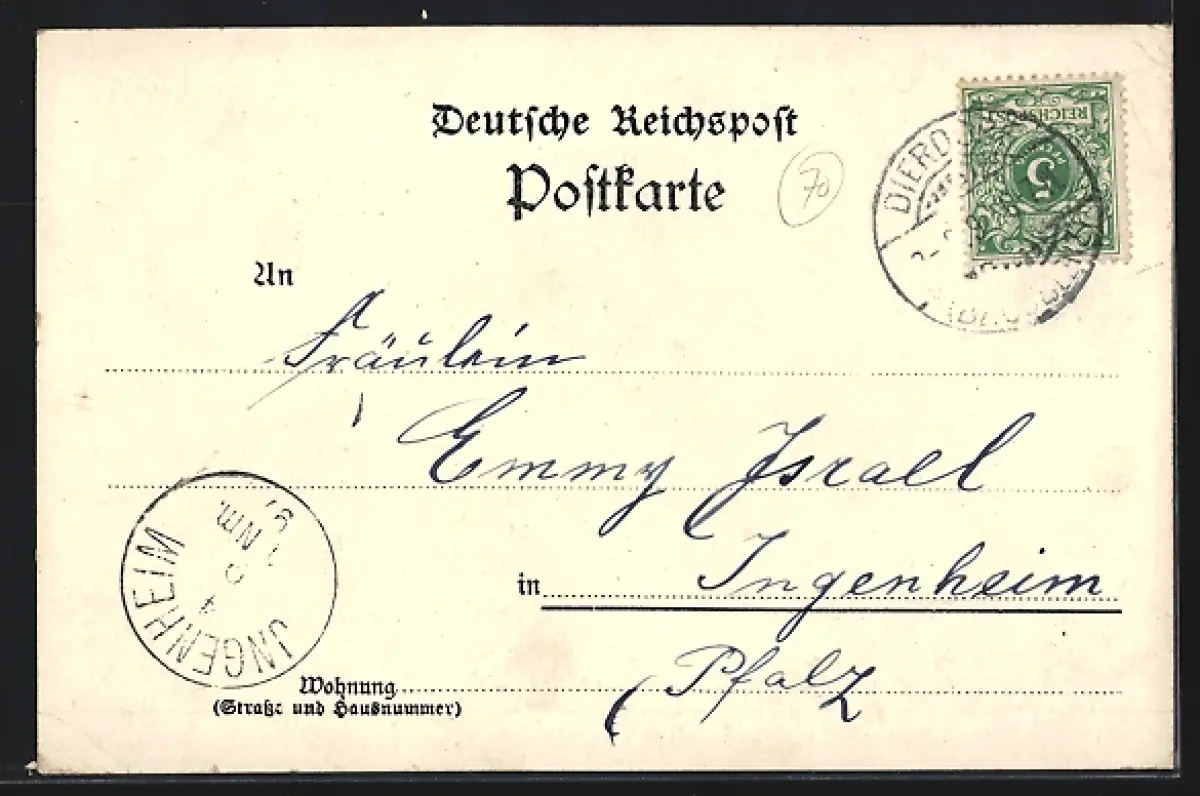 Deutsche Reichspost
Postkarte
70
REICHSPOST
5
PFENNIG
DIERD
An
Fräulein
Emmy Israel
in Ingenheim
Pfalz
INGENHEIM
Nm.
Wohnung
(Straße und Hausnummer)